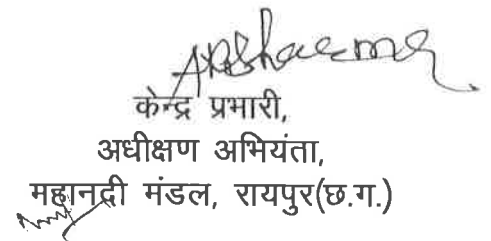 केन्द्र प्रभारी,
अधीक्षण अभियंता,
महानदी मंडल, रायपुर(छ.ग.)